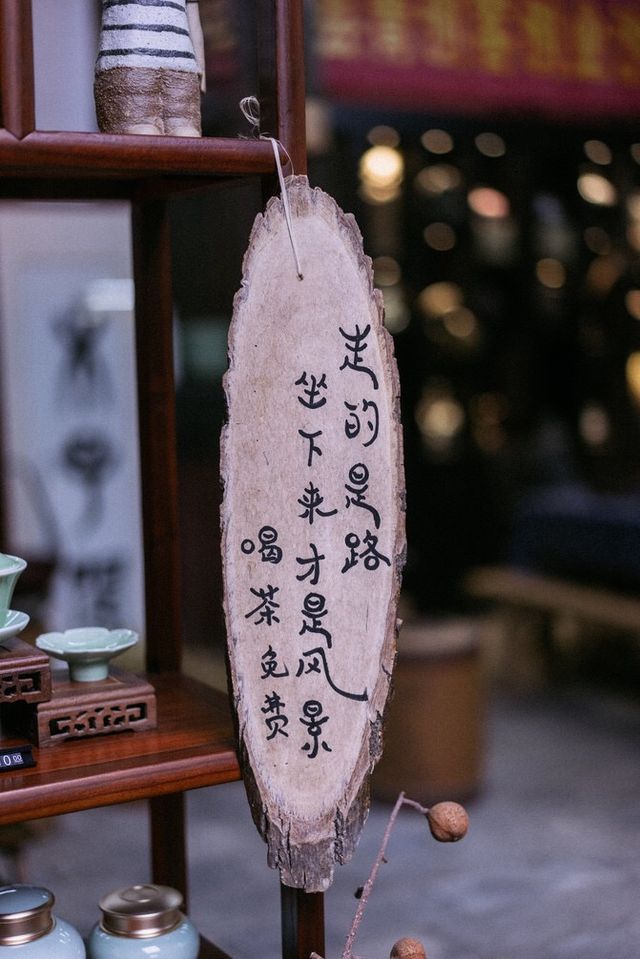 走的是路
坐下来才是风景
喝茶免费